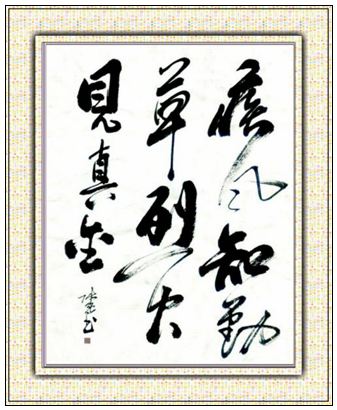 疾风知勁
草烈火
見真金